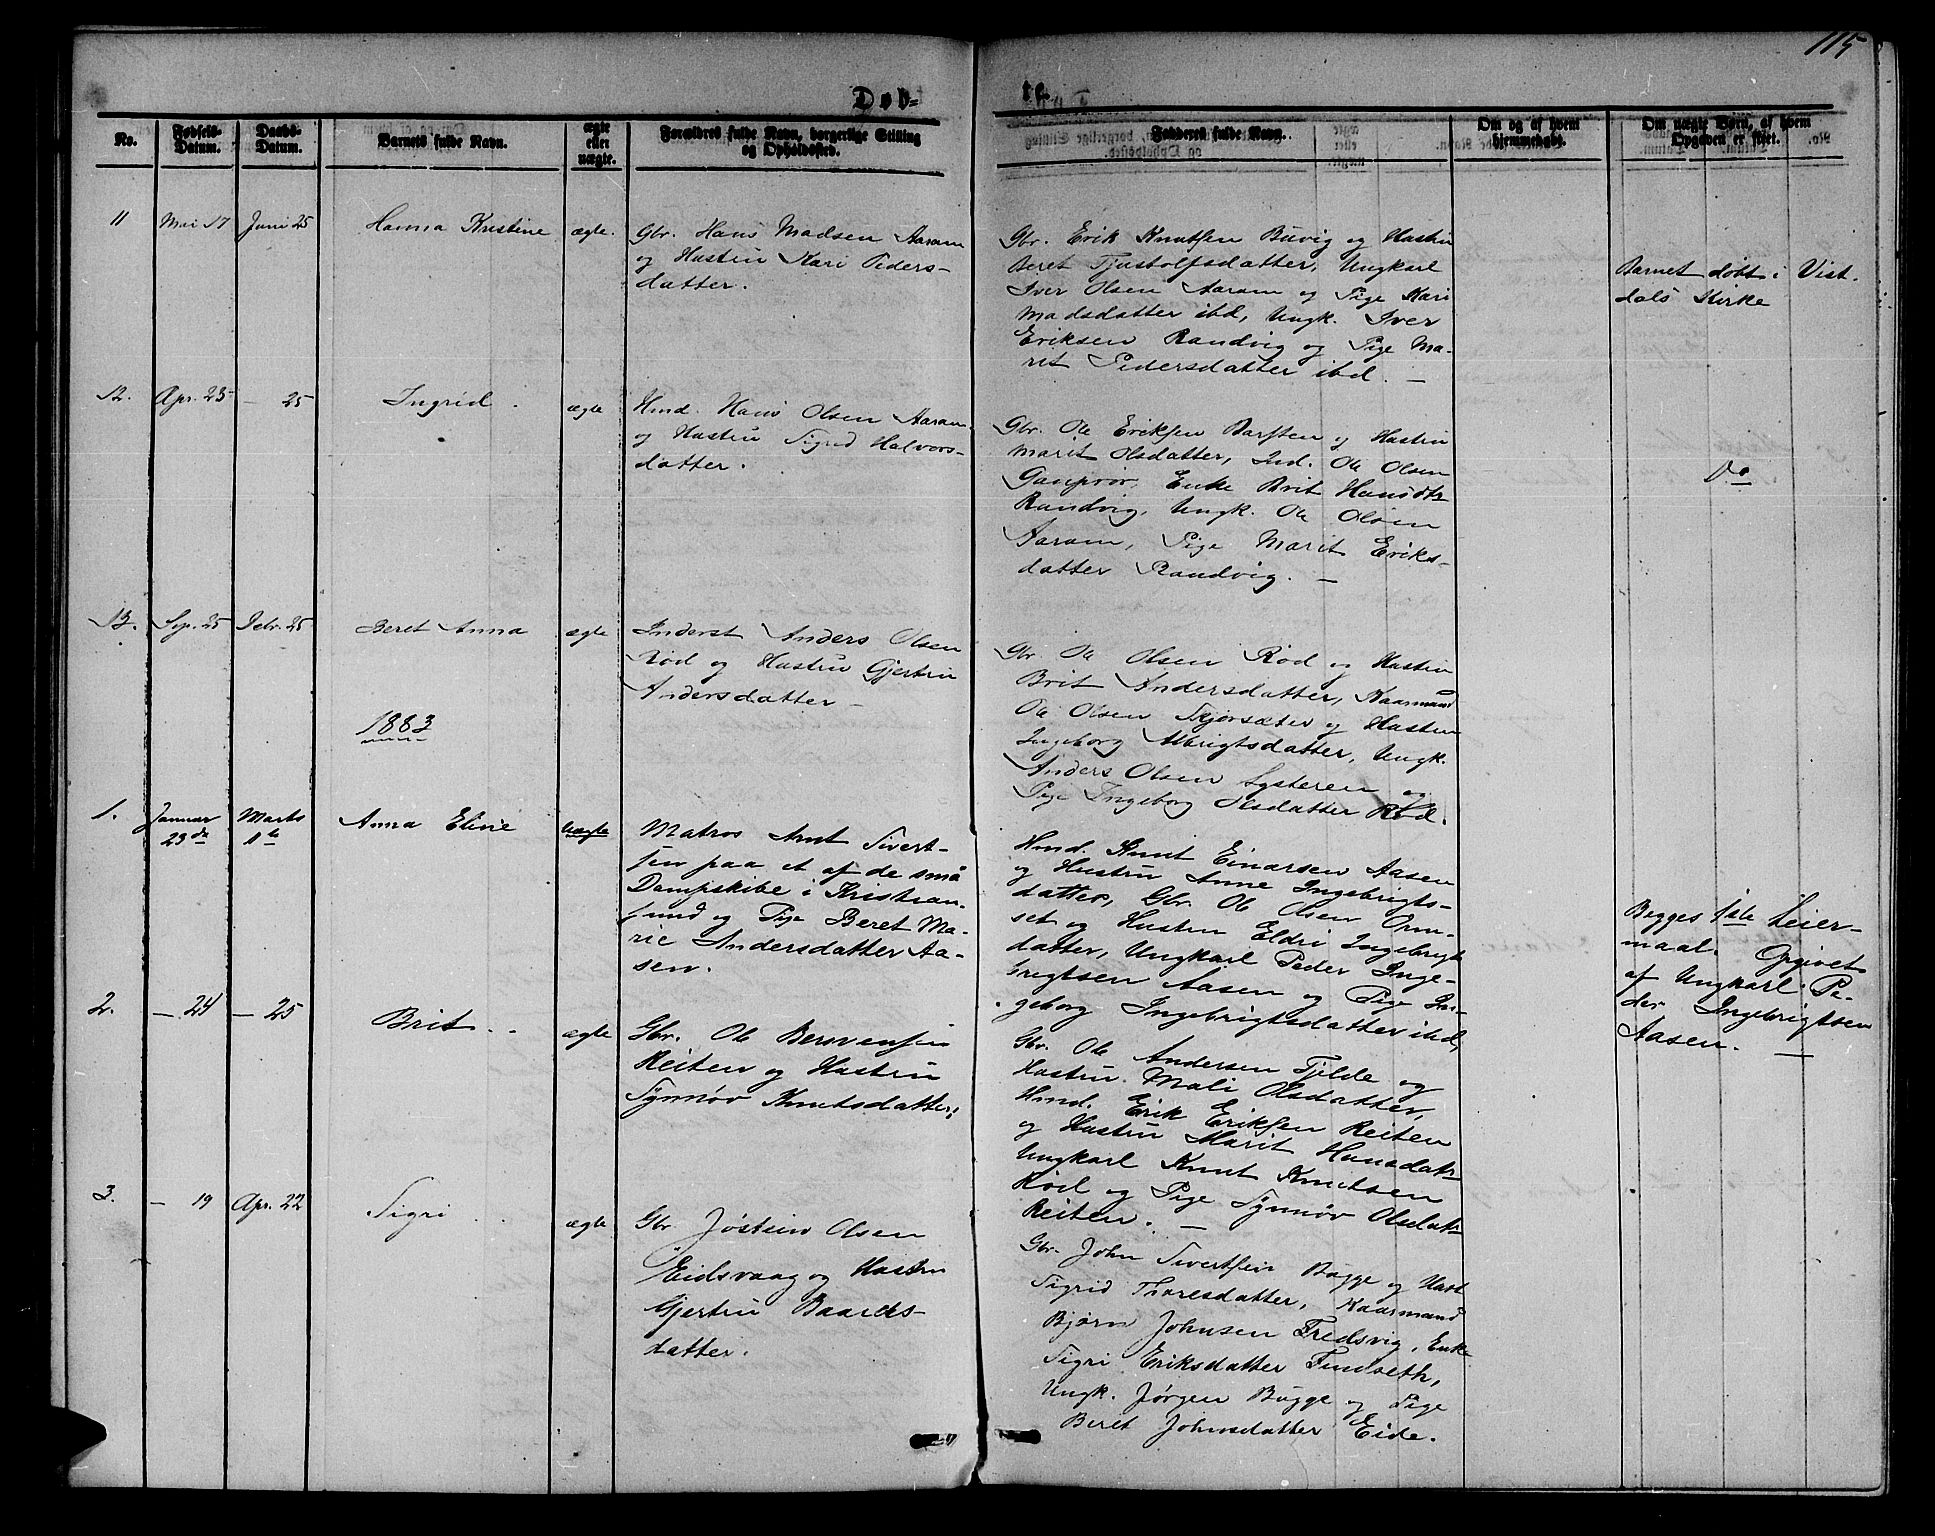 115
Døb-
te.
No.
Fødsels-
Datum.
Daabs-
Datum.
Barnets fulde Navn.
ægte
eller
uægte.
Forældres fulde Navn, borgerlige Stilling
og Opholdssted.
Fadderes fulde Navn.
Om og af hvem
hjemmedøbt.
Om uægte Børn, af hvem
Opgaven er skeet.
11
Mai 17
Juni 25
Hanna Kristine
ægte.
Gbr. Hans Madsen Aaram
og Hustru Kari Peders-
datter.
Gbr. Erik Knutsen Buvig og Hustru
Beret Tjustolfsdatter, Ungkarl
Iver Olsen Aaram og Pige Kari
Madsdatter ibd, Ungk. Iver
Eriksen Randvig og Pige Ma-
rit Pedersdatter ibd. —
Barnet døbt i Vist-
dals Kirke
12.
Apr. 23
— 25
Ingrid.
ægte
Hmd. Hans Olsen Aaram
og Hustru Sigrid Halvors-
datter.
Gbr. Ole Eriksen Barsten og Hustru
Marit Olsdatter, Ind. Ole Olsen
Enke Brit Hansdtr
Randvig, Ungk. Ole Olsen
Aaram, Pige Marit Eriks-
datter Randvig. —
Do
13.
Sep. 25
Febr. 25
Beret Anna
ægte
Inderst Anders Olsen
Rød og Hustru Gjertru
Andersdatter —
Gbr. Ole Olsen Rød og Hustru
Brit Andersdatter, Kaarmand
Ole Olsen Skjørsæter og Hustru
Ingeborg Albrigtsdatter, Ungk.
Anders Olsen Systeren og
Pige Ingeborg Olsdatter Rød.
1883
1.
Januar
23de
Marts
1ste
Anna Eline
uægte
Matros Arnt Sivert-
sen paa et af de små
Dampskibe i Kristian-
sund og Pige Beret Ma-
rie Andersdatter Aa-
sen.
Hmd. Knut Einarsen Aasen
og Hustru Anne Ingebrigts-
datter, Gbr. Ole Olsen Orm-
set og Hustru Eldri Ingebrigts
datter, Ungkarl Peder Inge-
brigtsen Aasen og Pige In-
geborg Ingebrigtsdatter ibd,
Begges 1ste Leier-
maal. Opgivet
af Ungkarl Pe-
der Ingebrigtsen
Aasen. —
2.
— 24
— 25
Brit..
ægte
Gbr. Ole Bersvensen
Reiten og Hustru
Synnøv Knutsdatter;
Gbr. Ole Andersen Tjelde og
Hustru Mali Olsdatter,
Hmd. Erik Eriksen Reiten
og Hustru Marit Hansdatr
Ungkarl Knut Knutsen
Rød og Pige Synnøv Olsdatr
Reiten. —
3.
— 19
Apr. 22
Sigri..
ægte
Gbr Jøstein Olsen
Eidsvaag og Hustru
Gjertru Baards-
datter.
Gbr. John Sivertsen Bugge og Hust
Sigrid Thoresdatter, Kaarmand
Bjørn Johnsen Fredsvig, Enke
Sigri Eriksdatter Finseth,
Ungk. Jørgen Bugge og Pige
Beret Johnsdatter Eide.